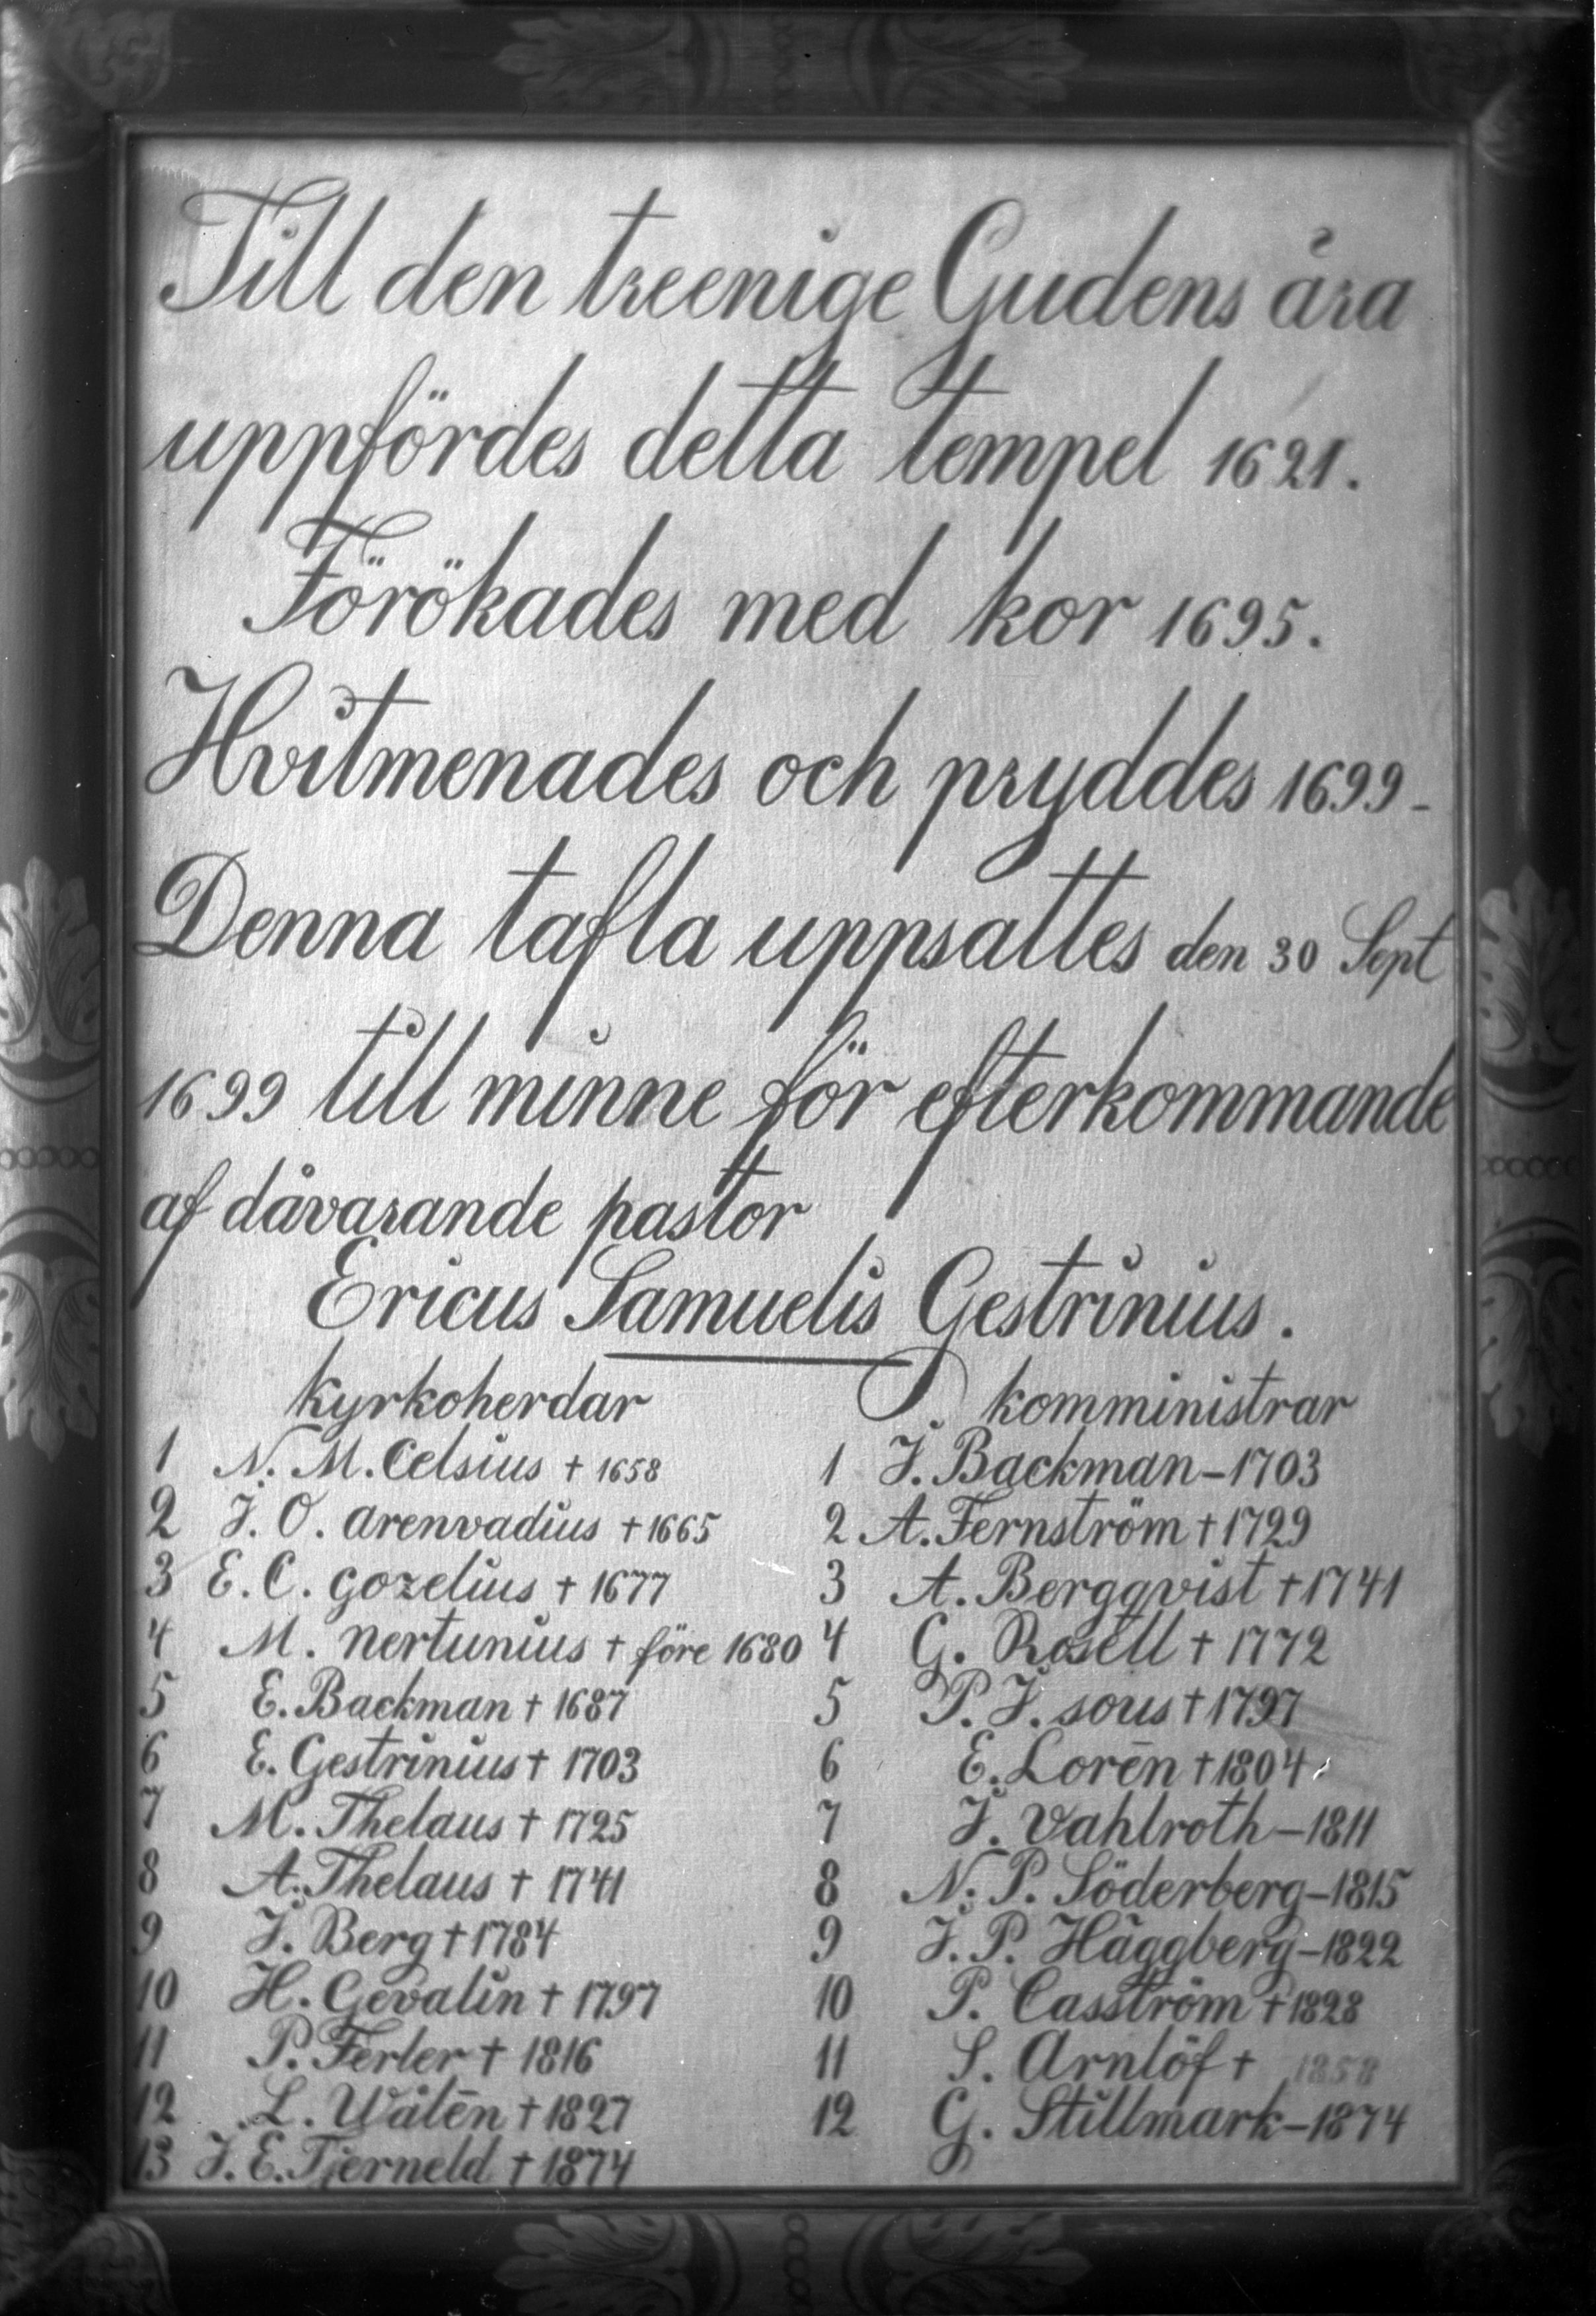 Till den treenige Gudens ära
uppfördes detta tempel 1621.
Förökades med kor 1695.
Hvitmenades och pryddes 1699-
Denna tafla uppsattes den 30 Sept
1699 till minne för efterkommande
af dåvarande pastor
Ericus Samuelis Gestrinius.
kyrkoherdar
1 N. M. Celsius † 1658
2 J. O. arenvadius † 1665
3 E. C. gozelius † 1677
4 M. nertunius † före 1680
5 E. Backman † 1687
6 E. Gestrinius † 1703
7 M. Thelaus † 1725
8 A. Thelaus † 1741
9 J. Berg † 1784
10 H. Gevalin † 1797
11 P. Ferler † 1816
12 L. Wålēn † 1827
13 J. E. Tjerneld † 1874
komministrar
1 J. Backman – 1703
2 A. Fernström † 1729
3 A. Bergqvist † 1741
4 G. Rosell † 1772
5 P. J. sous † 1797
6 E. Lorēn † 1804
7 J. Vahlroth – 1811
8 N. P. Söderberg – 1815
9 J. P. Häggberg – 1822
10 P. Casström † 1828
11 S. Arnlöf † 1858
12 G. Stillmark – 1874